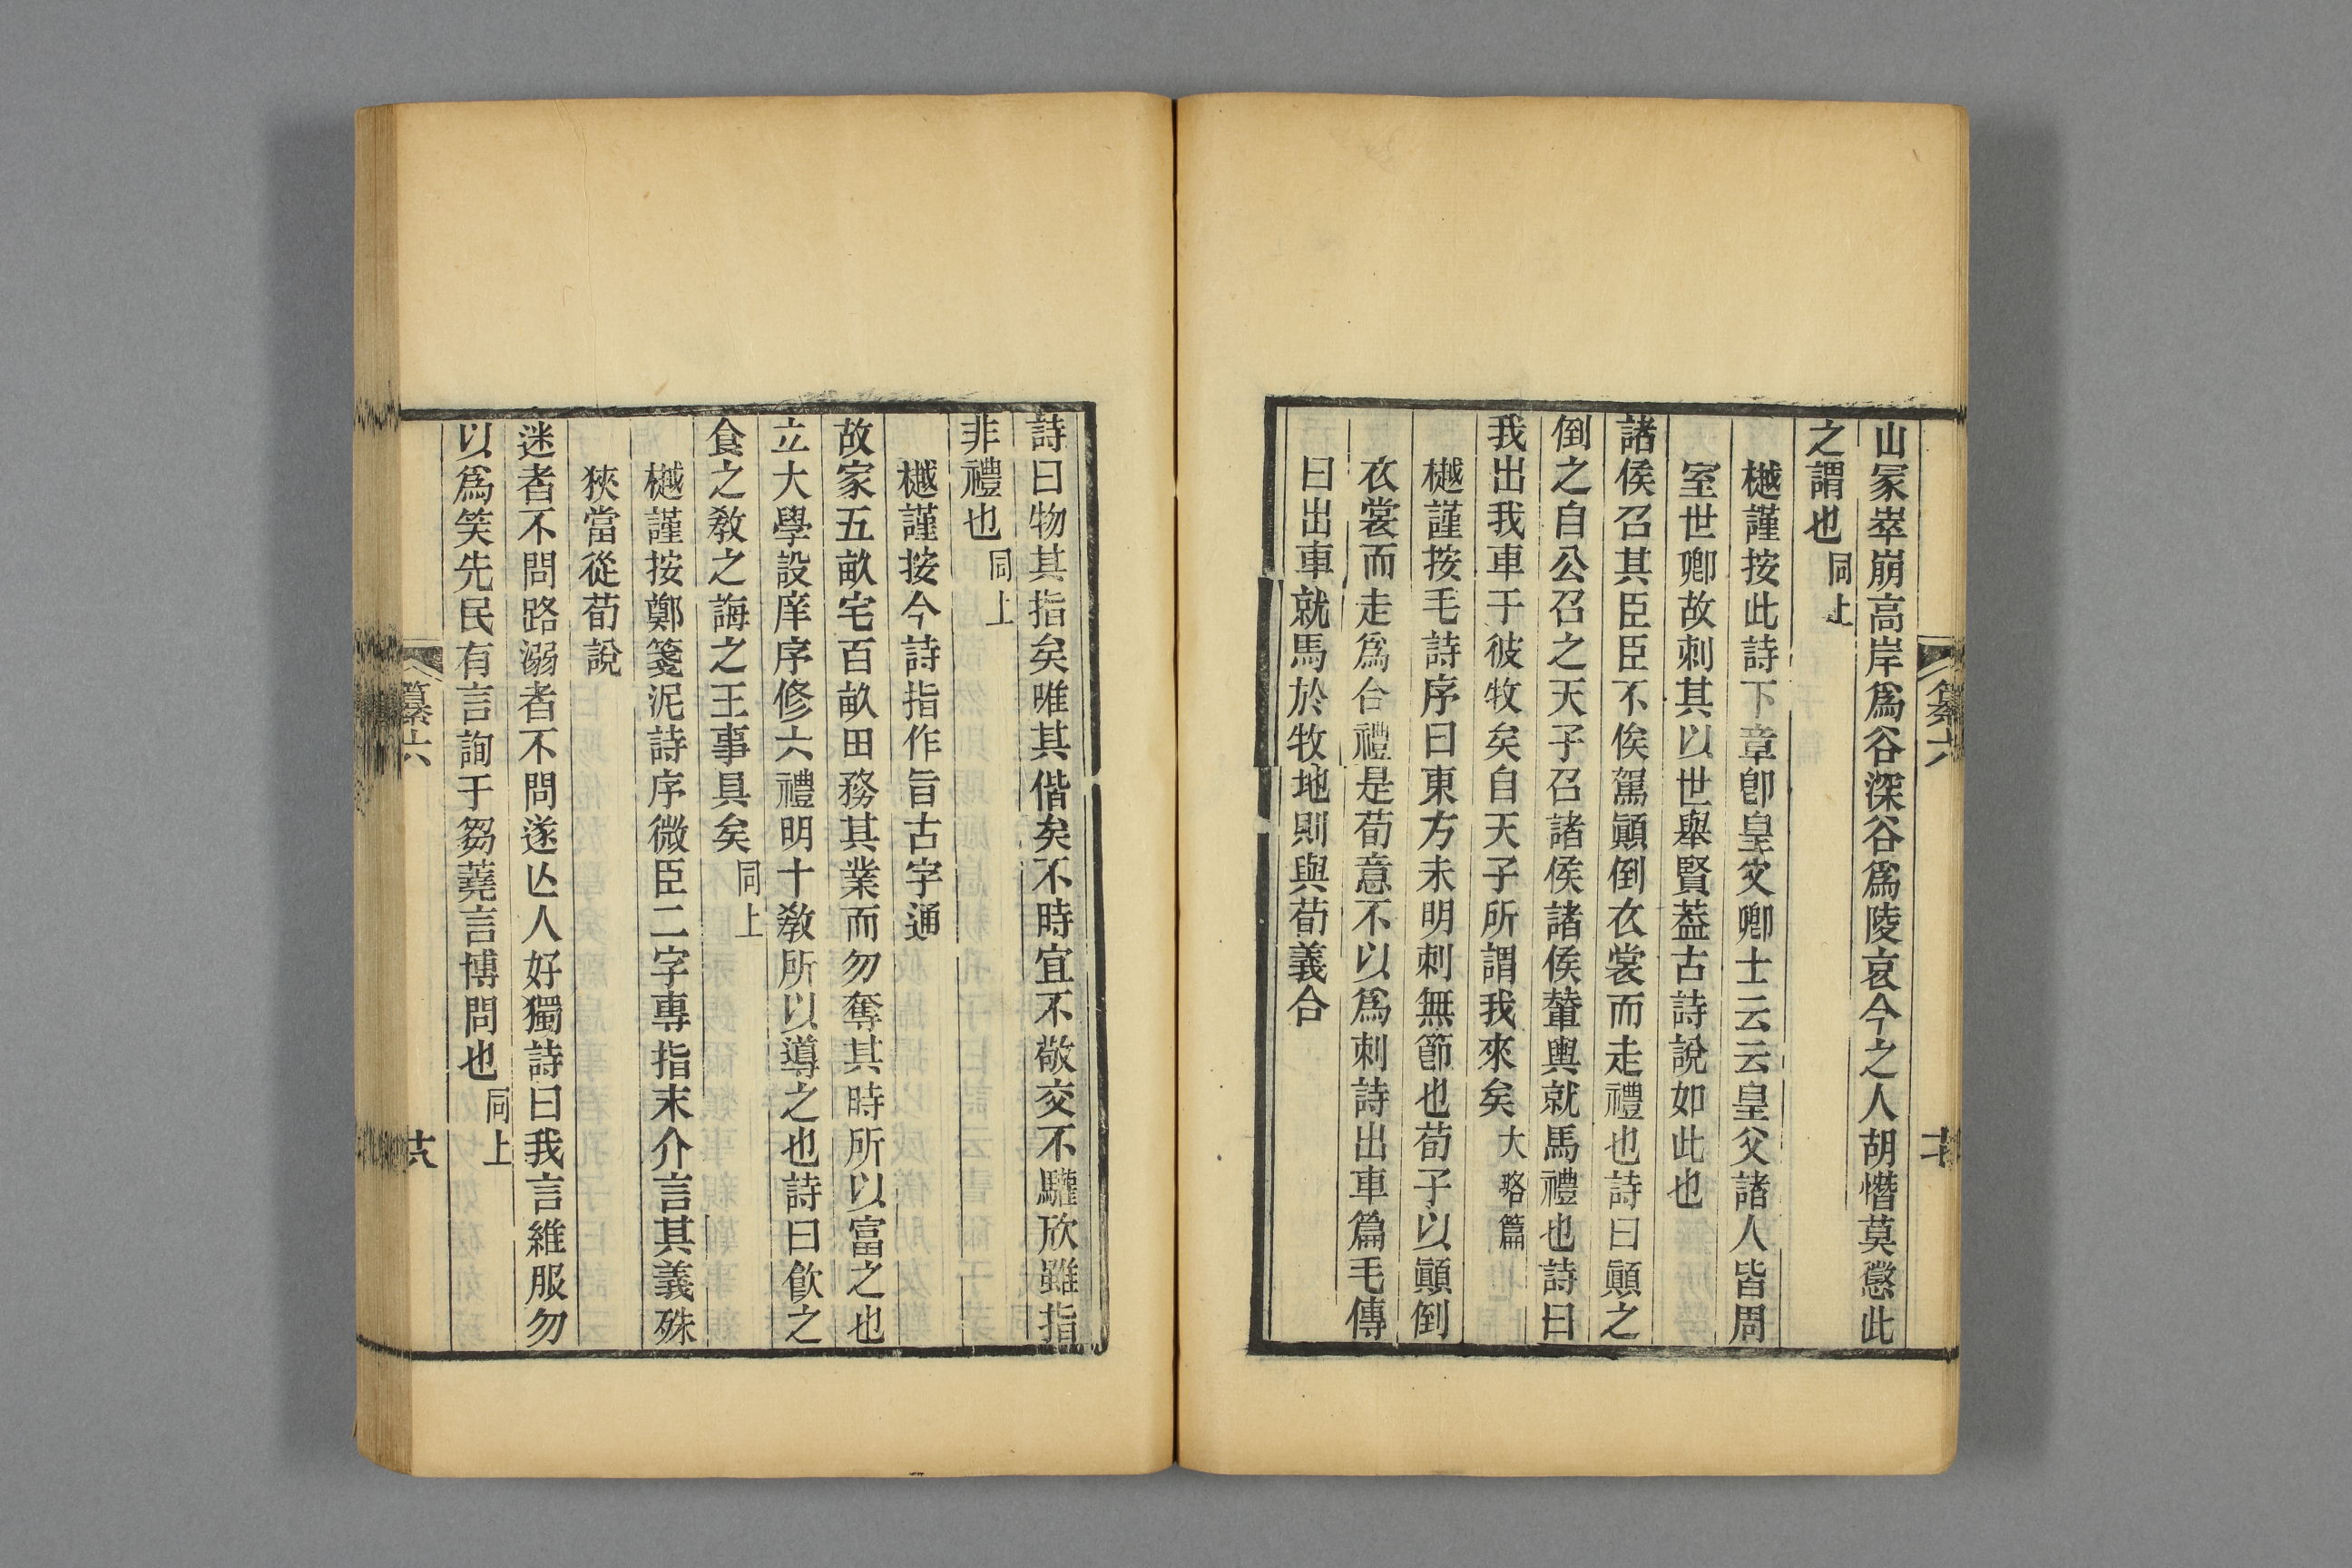 山冢崒崩高岸爲谷深谷爲陵哀今之人胡憯莫懲此
之謂也同上
樾謹按此詩下章卽皇父卿士云云皇父諸人皆周
室世卿故刺其以世舉賢葢古詩說如此也
諸侯召其臣臣不俟駕顚倒衣裳而走禮也詩曰顚之
倒之自公召之天子召諸侯諸侯輦輿就馬禮也詩曰
我出我車于彼牧矣自天子所謂我來矣大略篇
樾謹按毛詩序曰東方未明刺無節也荀子以顚倒
衣裳而走爲合禮是荀意不以爲刺詩出車篇毛傳
曰出車就馬於牧地則與荀義合
纂六
詩曰物其指矣唯其偕矣不時宜不敬交不驩欣雖指
非禮也同上
樾謹按今詩指作旨古字通
故家五畝宅百畝田務其業而勿奪其時所以富之也
立大學設庠序修六禮明十敎所以導之也詩曰飮之
食之敎之誨之王事具矣同上
樾謹按鄭箋泥詩序微臣二字專指末介言其義殊
狹當從荀說
迷者不問路溺者不問遂亾人好獨詩曰我言維服勿
以爲笑先民有言詢于芻蕘言博問也同上
纂六